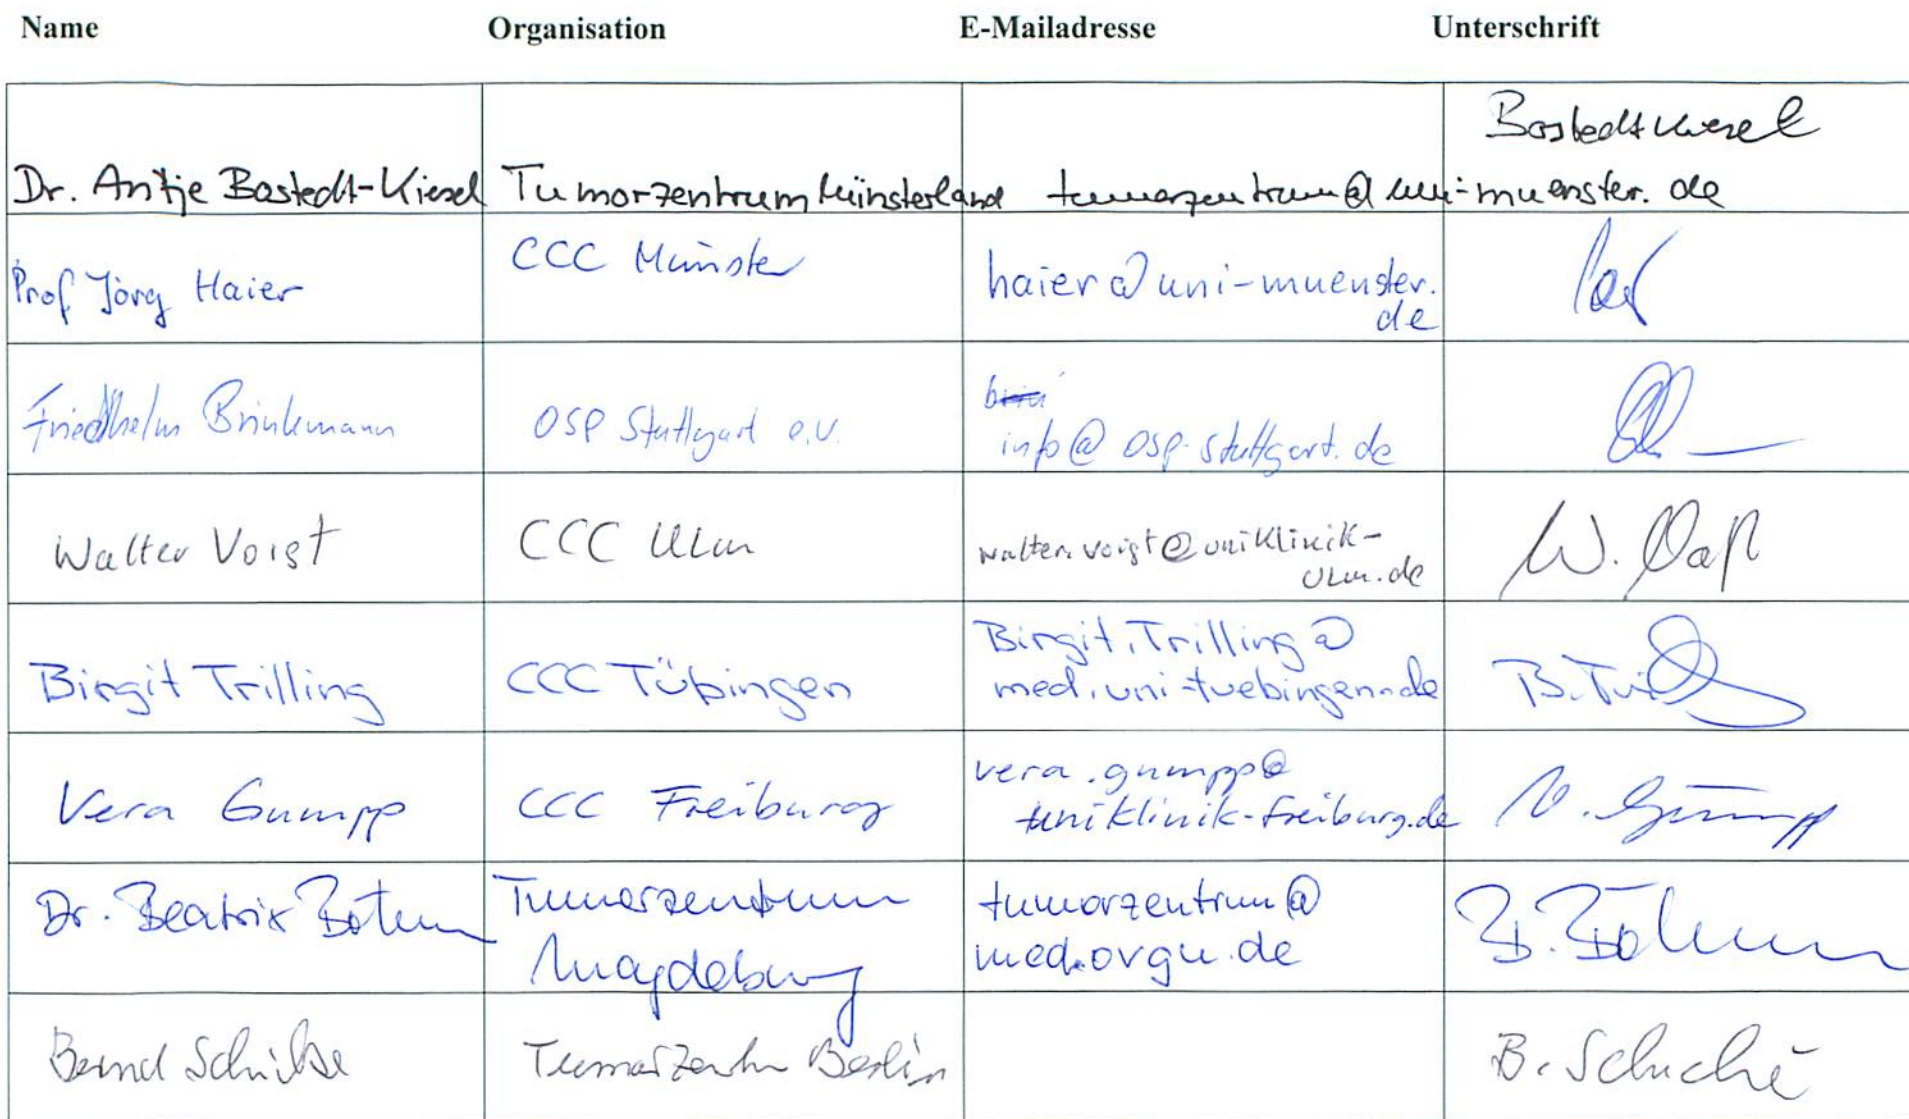 Name Organisation E-Mailadresse Unterschrift
Bostedt-Kiesel
Dr. Antje Bostedt-Kiesel Tumorzentrum Münsterland tumorzentrum@uni-muenster.de
Prof Jörg Haier CCC Münster haier@uni-muenster.
de
Friedhelm Brinkmann OSP Stuttgart e.V.
info@osp-stuttgart.de
Walter Voigt CCC Ulm walter.voigt@uniklinik-
ulm.de W.
Birgit Trilling CCC Tübingen Birgit.Trilling@
med.uni-tuebingen.de B.
Vera Gumpp CCC Freiburg vera.gumpp@
uniklinik-freiburg.de V. Gumpp
Dr. Beatrix Böhm Tumorzentrum tumorzentrum@
Magdeburg med.ovgu.de B. Böhm
Bernd Tumorzentrum Berlin B.